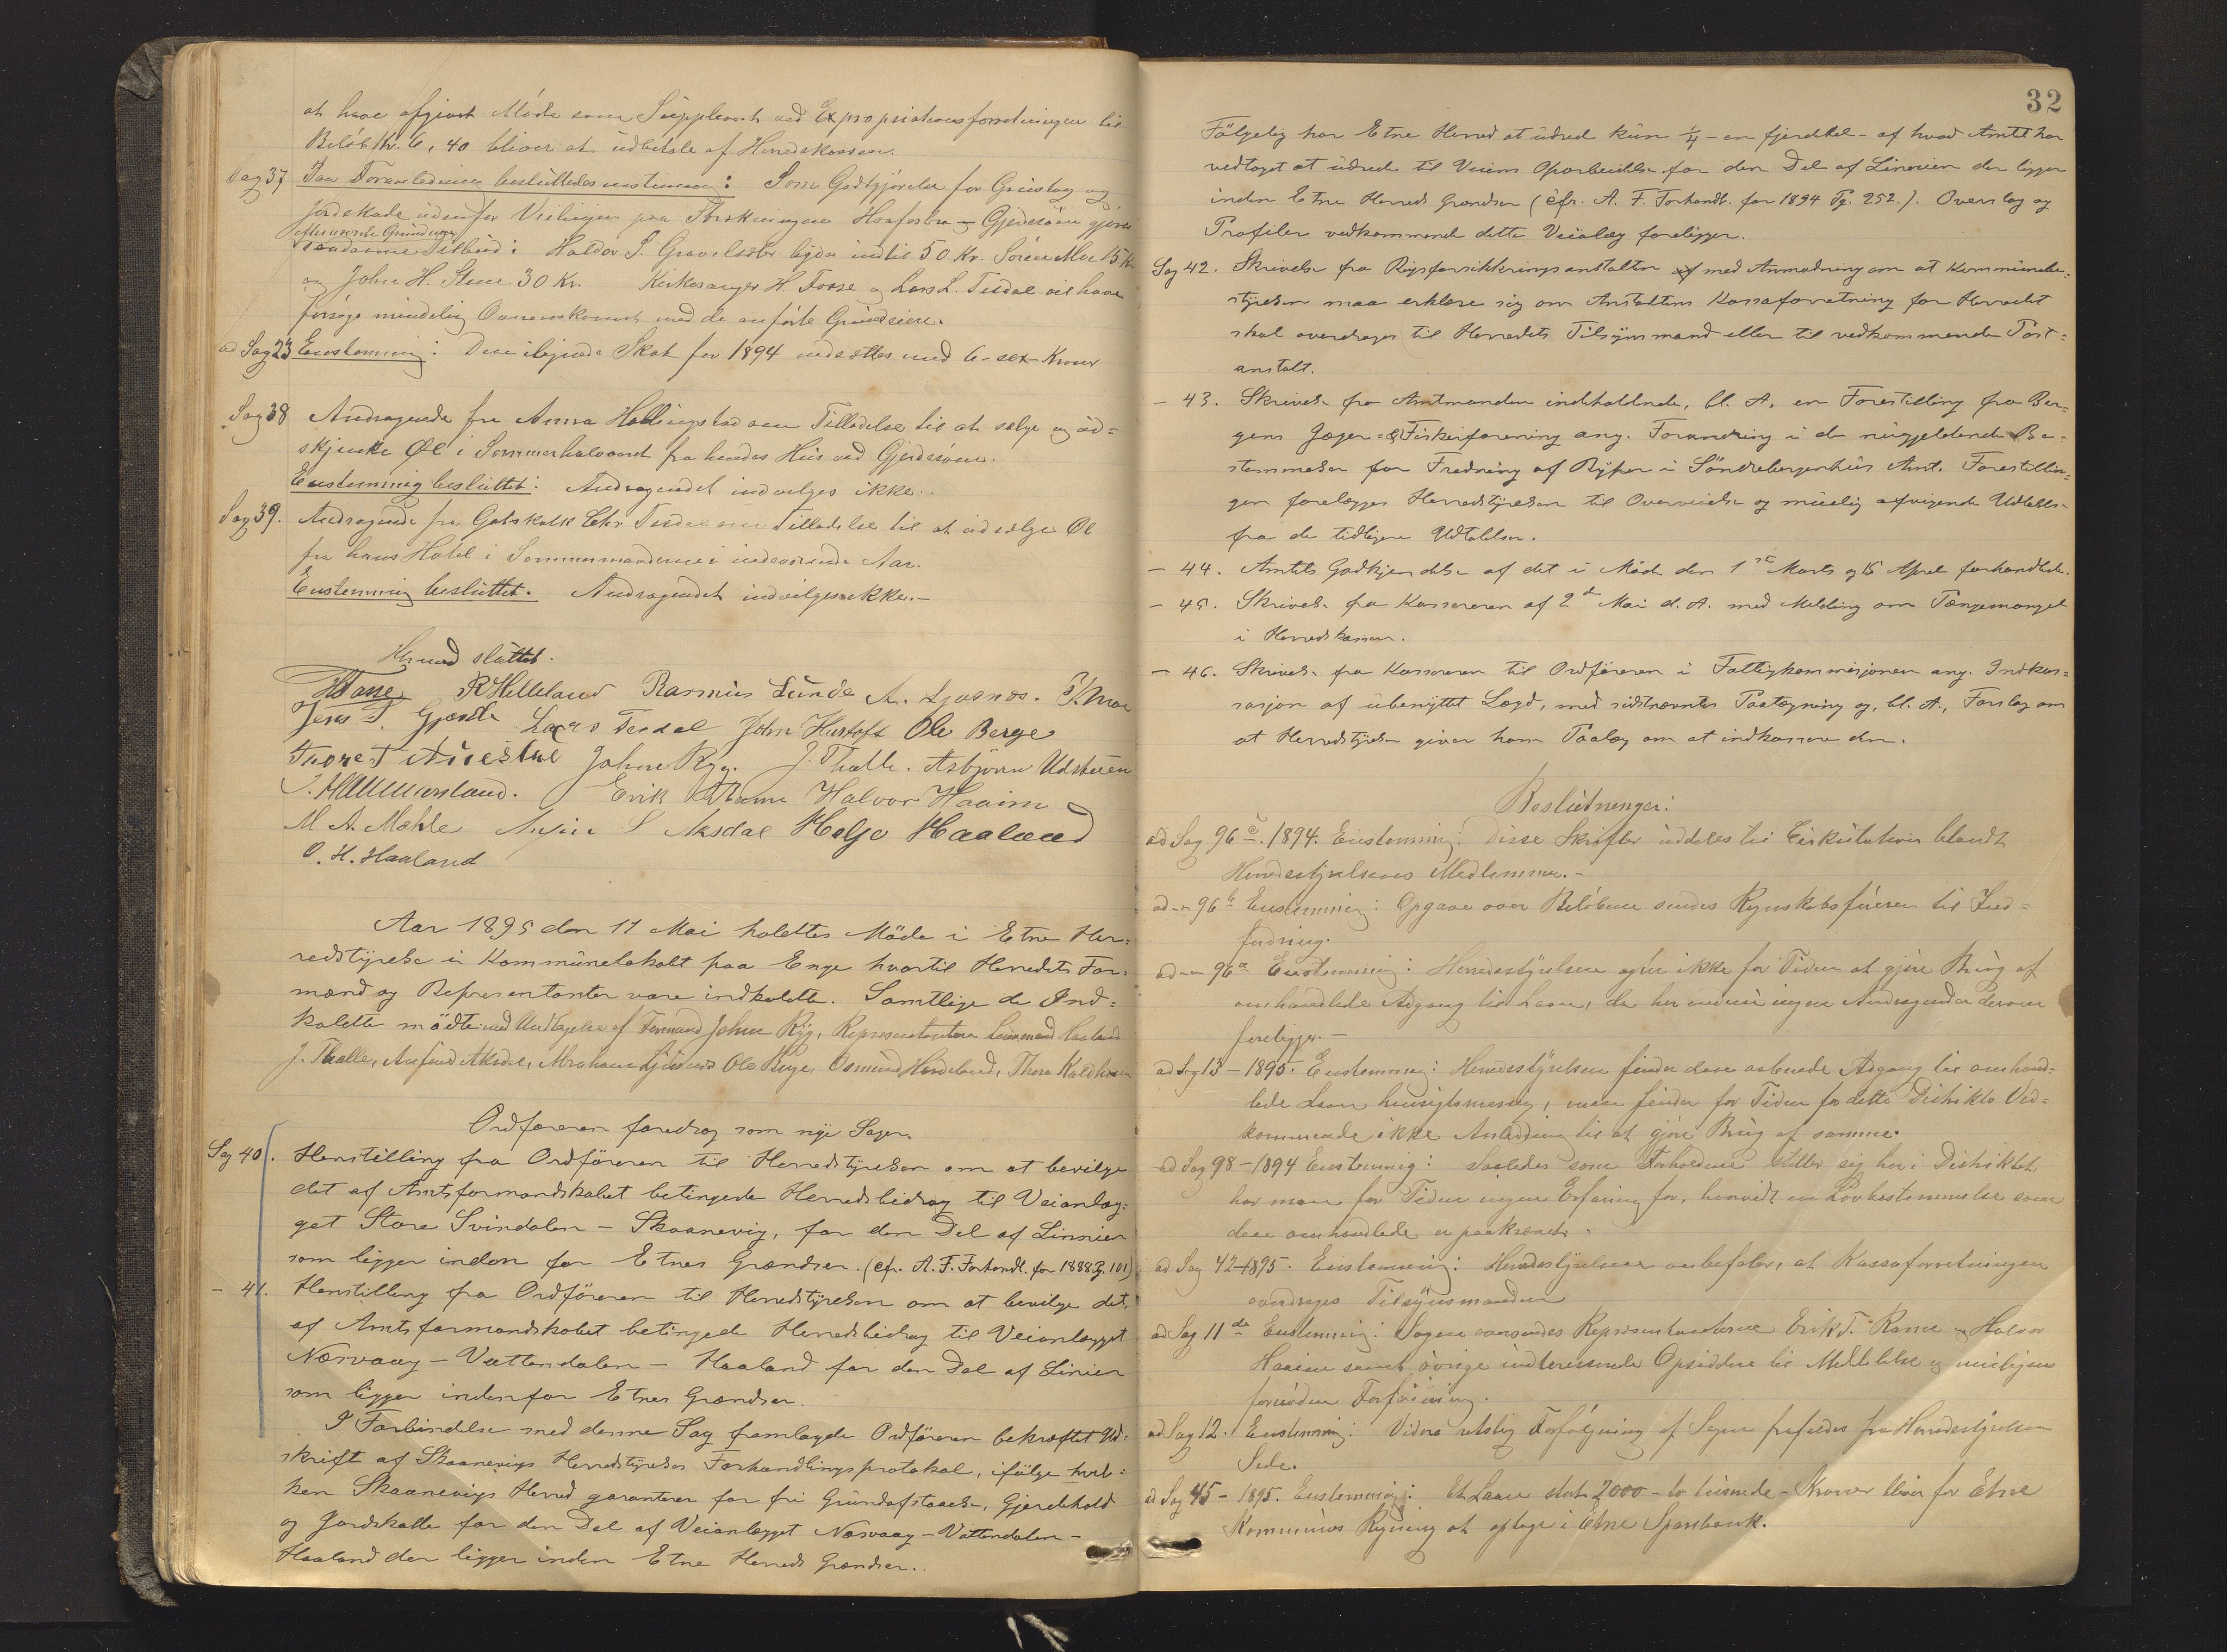 at have afgivet Möde som Suppleant ved Expropriationsforretningen til
Beløb Kr. 6,40 bliver at udbetale af Herredskassen.
Sag 37 Paa Foranledning besluttedes enstemmig: Som Godtgjörelse for Grustag og
Jordskade udenfor Veilinjen paa Strækningen Haafosbro - Gjerdesöen gjöres
efternævnte Grundeiere
saadanne Tilbud: Haldor S. Gravelsæter bydes indtil 50 Kr. Sören Moe 15 Kr
og John H. Stene 30 Kr. Kirkesanger H. Fosse og Lars L. Tesdal vil have
forsøge mindelig Overenskomst med de anförte Grundeiere.
ad Sag 23 Enstemmig: Den ilignede Skat for 1894 nedsættes med 6 - sex Kroner
Sag 38 Andragende fra Anna Hollingstad om Tilladelse til at sælge og ud=
skjænke Øl i Sommerhalvaaret fra hendes Hus ved Gjerdesöen.
Enstemmig besluttet: Andragendet indvilges ikke.
Sag 39. Andragende fra Gotskalk Chr Tesdal om Tilladelse til at udsælge Øl
fra hans Hotel i Sommermaanederne i indeværende Aar.
Enstemmig besluttet. Andragendet indvilges ikke.-
Hermed sluttet.
HFosse R Helleland Rasmus Lunde A. Ljosnes. S. Moe
Jens T. Gjærde Lars Tesdal John Hustoft Ole Berge
Thore T John Ryg. J. Thalle. Asbjörn Udstuen
Erik Rame Halvor Haaim
M A. Mæhle S Aksdal Helje Haaland
O. H. Haaland
Aar 1895 den 11 Mai holdtes Möde i Etne Her=
redstyrelse i Kommunelokalet paa Enge hvortil Herredets For=
mænd og Repræsentanter vare indkaldte. Samtlige de Ind=
kaldte mödte med Undtagelse af Formand John Ryg, Repræsentanterne Haaland
J. Thalle, Anfind Aksdal, Abraham Ljosnes Ole Berge, Osmund Hindeland, Thore Kaldheim
Ordföreren foredrog som nye Sager.
Sag 40. Henstilling fra Ordföreren til Herredstyrelsen om at bevilge
det af Amtsformandskabet betingede Herredsbidrag til Veianlæg=
get Store Svindalen - Skaanevig, for den Del af Linnien
som ligger inden for Etnes Grændser. (cfr. A. F. Forhandl. for 1888 Pg. 101)
- 41. Henstilling fra Ordföreren til Herredstyrelsen om at bevilge det,
af Amtsformandskabet betingede Herredsbidrag til Veianlægget
Næsvaag - Vattendalen - Haaland for den Del af Linien
som ligger indenfor Etnes Grændser.
I Forbindelse med denne Sag fremlagde Ordföreren bekræftet Ud=
skrift af Skaanevigs Herredstyrelses Forhandlingsprotokol, ifølge hvil=
ken Skaanevigs Herred garanterer for fri Grundafstaaelse, Gjerdehold
og Jordskatte for den Del af Veianlægget Næsvaag - Vattendalen -
Haaland der ligger inden Etne Herreds Grændser.
32
Fölgelig har Etne Herred at udrede kun 1/4 - en fjerdedel - af hvad Amtet har
vedtaget at udrede til Veiens Oparbeidelse for den Del af Linnien der ligger
inden Etne Herreds Grændser (cfr. A. F. Forhandl. for 1894 Pg. 252.). Overslag og
Profiler vedkommende dette Veianlæg foreligger.
Sag 42. Skrivelse fra Rigsforsikkringsanstalten med Anmodning om at Kommunebe=
styrelsen maa erklære sig om Anstaltens Kasseforretning for Herredet
skal overdrages til Herredets Tilsynsmand eller til vedkommende Post=
anstalt.
- 43. Skrivelse fra Amtmanden indeholdende, bl. A. en Forestilling fra Ber=
gens Jæger- & Fiskeriforening ang. Forandring i de nugjeldende Be=
stemmelser for Fredning af Ryper i Söndrebergenhus Amt. Forestillin=
gen forelægges Herredstyrelsen til Overveielse og muelig afvigende Udtalelse
fra de tidligere Udtalelser.
- 44. Amtets Godkjendelse af det i Möde den 1ste Marts og 15 April forhandlede.
- 45. Skrivelse fra Kassereren af 2de Mai d. A. med Melding om Pengemangel
i Herredskassen.
- 46. Skrivelse fra Kassereren til Ordföreren i Fattigkommisjonen ang. Indkas=
sasjon af ubenyttet Lægd, med sidstnævntes Paategning og, bl. A., Forslag om
at Herredstyrelsen giver ham Paalæg om at indkassere den.
Beslutninger:
ad Sag 96 c. 1894. Enstemmig: Disse Skrifter uddeles til Cirkulation blandt
Herredsstyrelsens Medlemmer.-
ad - 96 b Enstemmig: Opgave over Beløbene sendes Regnskabsføreren til Ind=
fodring.
ad - 96 a Enstemmig: Herredsstyrelsen agter ikke for Tiden at gjøre Brug af
omhandlede Adgang til Laan, da her endnu ingen Andragender derom
foreligger.-
ad Sag 13 - 1895. Enstemmig: Herredsstyrelsen finder den aabnede Adgang til omhand=
lede Laan hensigtsmessig, men finder for Tiden for dette Distrikts Ved=
kommende ikke Anledning til at gjøre Brug af samme.
ad Sag 98 - 1894 Enstemmig: Saaledes som Forholdene stiller sig her i Distriktet
har man for Tiden ingen Erfaring for, hvorvidt en Lovbestemmelse som
den omhandlede er paakrævet.
ad Sag 42 - 1895. Enstemmig: Herredsstyrelsen anbefaler, at Kasseforretningen
overdrages Tilsynsmanden
ad Sag 11 Enstemmig: Sagen oversendes Repræsentanterne Erik T. Rame og Halvor
Haaim samt øvrige interesserede Opsiddere til Meddelelse og muligens
fornøden Forføining.
ad Sag 12. Enstemmig: Videre retslig Forfølgning af Sagen frafaldes fra Herredsstyrelsens
Side.
ad Sag 45 - 1895. Enstemmig: Et Laan stort 2000 - to tusinde - Kroner bliver for Etne
Kommunes Regning at optage i Etne Sparebank.